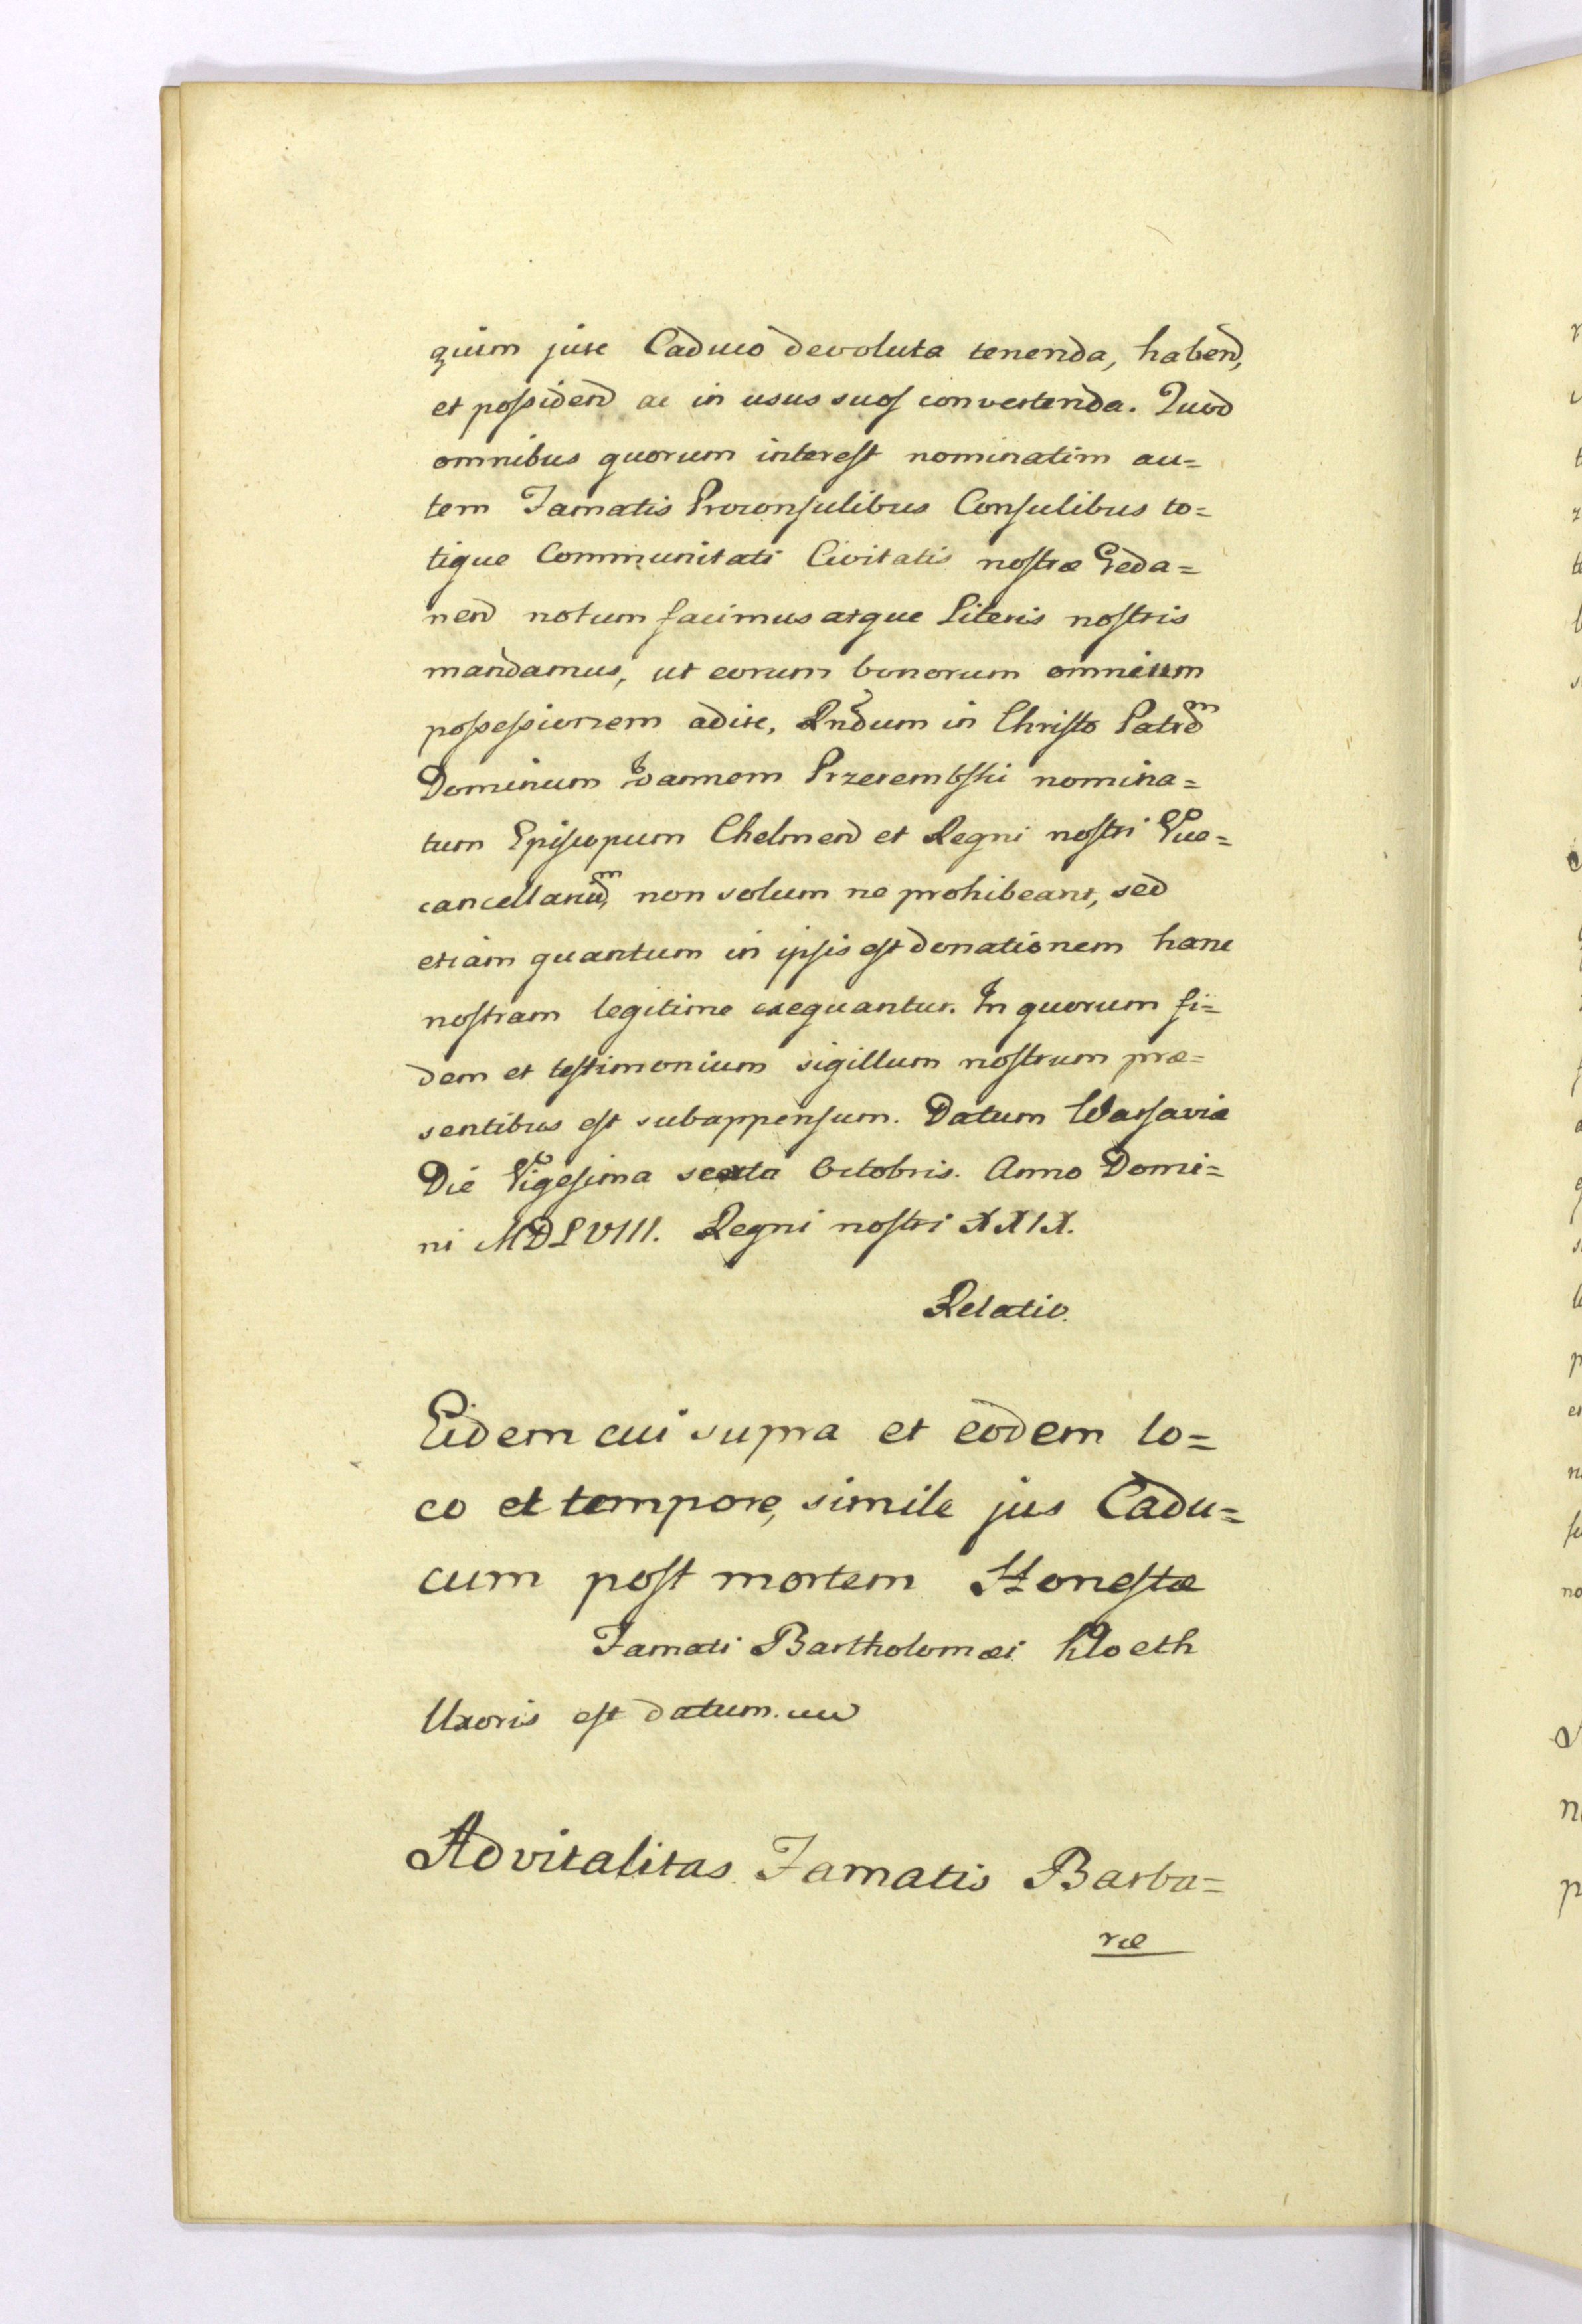 quim jure Caduco devoluta tenenda, habend,
et possidend ac in usus suos convertenda. Quod
omnibus quorum interest nominatim au=
tem Famatis Proconsulibus Consulibus to=
tique Communitati Civitatis nostræ Geda=
nend notum facimus atque Literis nostris
mandamus, ut eorum bonorum omnium
possessionem adire, Rndum in Christo Patrem
Dominum Joannem Przerembski nomina=
tum Episcopum Chelmend et Regni nostri Vice=
cancellarium, non solum ne prohibeant, sed
etiam quantum in ipsis est donationem hanc
nostram legitime exequantur. In quorum fi=
dem et testimonium sigillum nostrum præ=
sentibus est subappensum. Datum Warsaviæ
Die Vigesima sexta Octobris. Anno Domi=
ni MDLVIII. Regni nostri XXIX.
Relatio.
Eidem cui supra et eodem lo=
co et tempore, simile jus Cadu=
cum post mortem Honestæ
Famati Bartholomæi Kloeth
Uxoris est datum.
Advitalitas Famatis Barba=
ræ